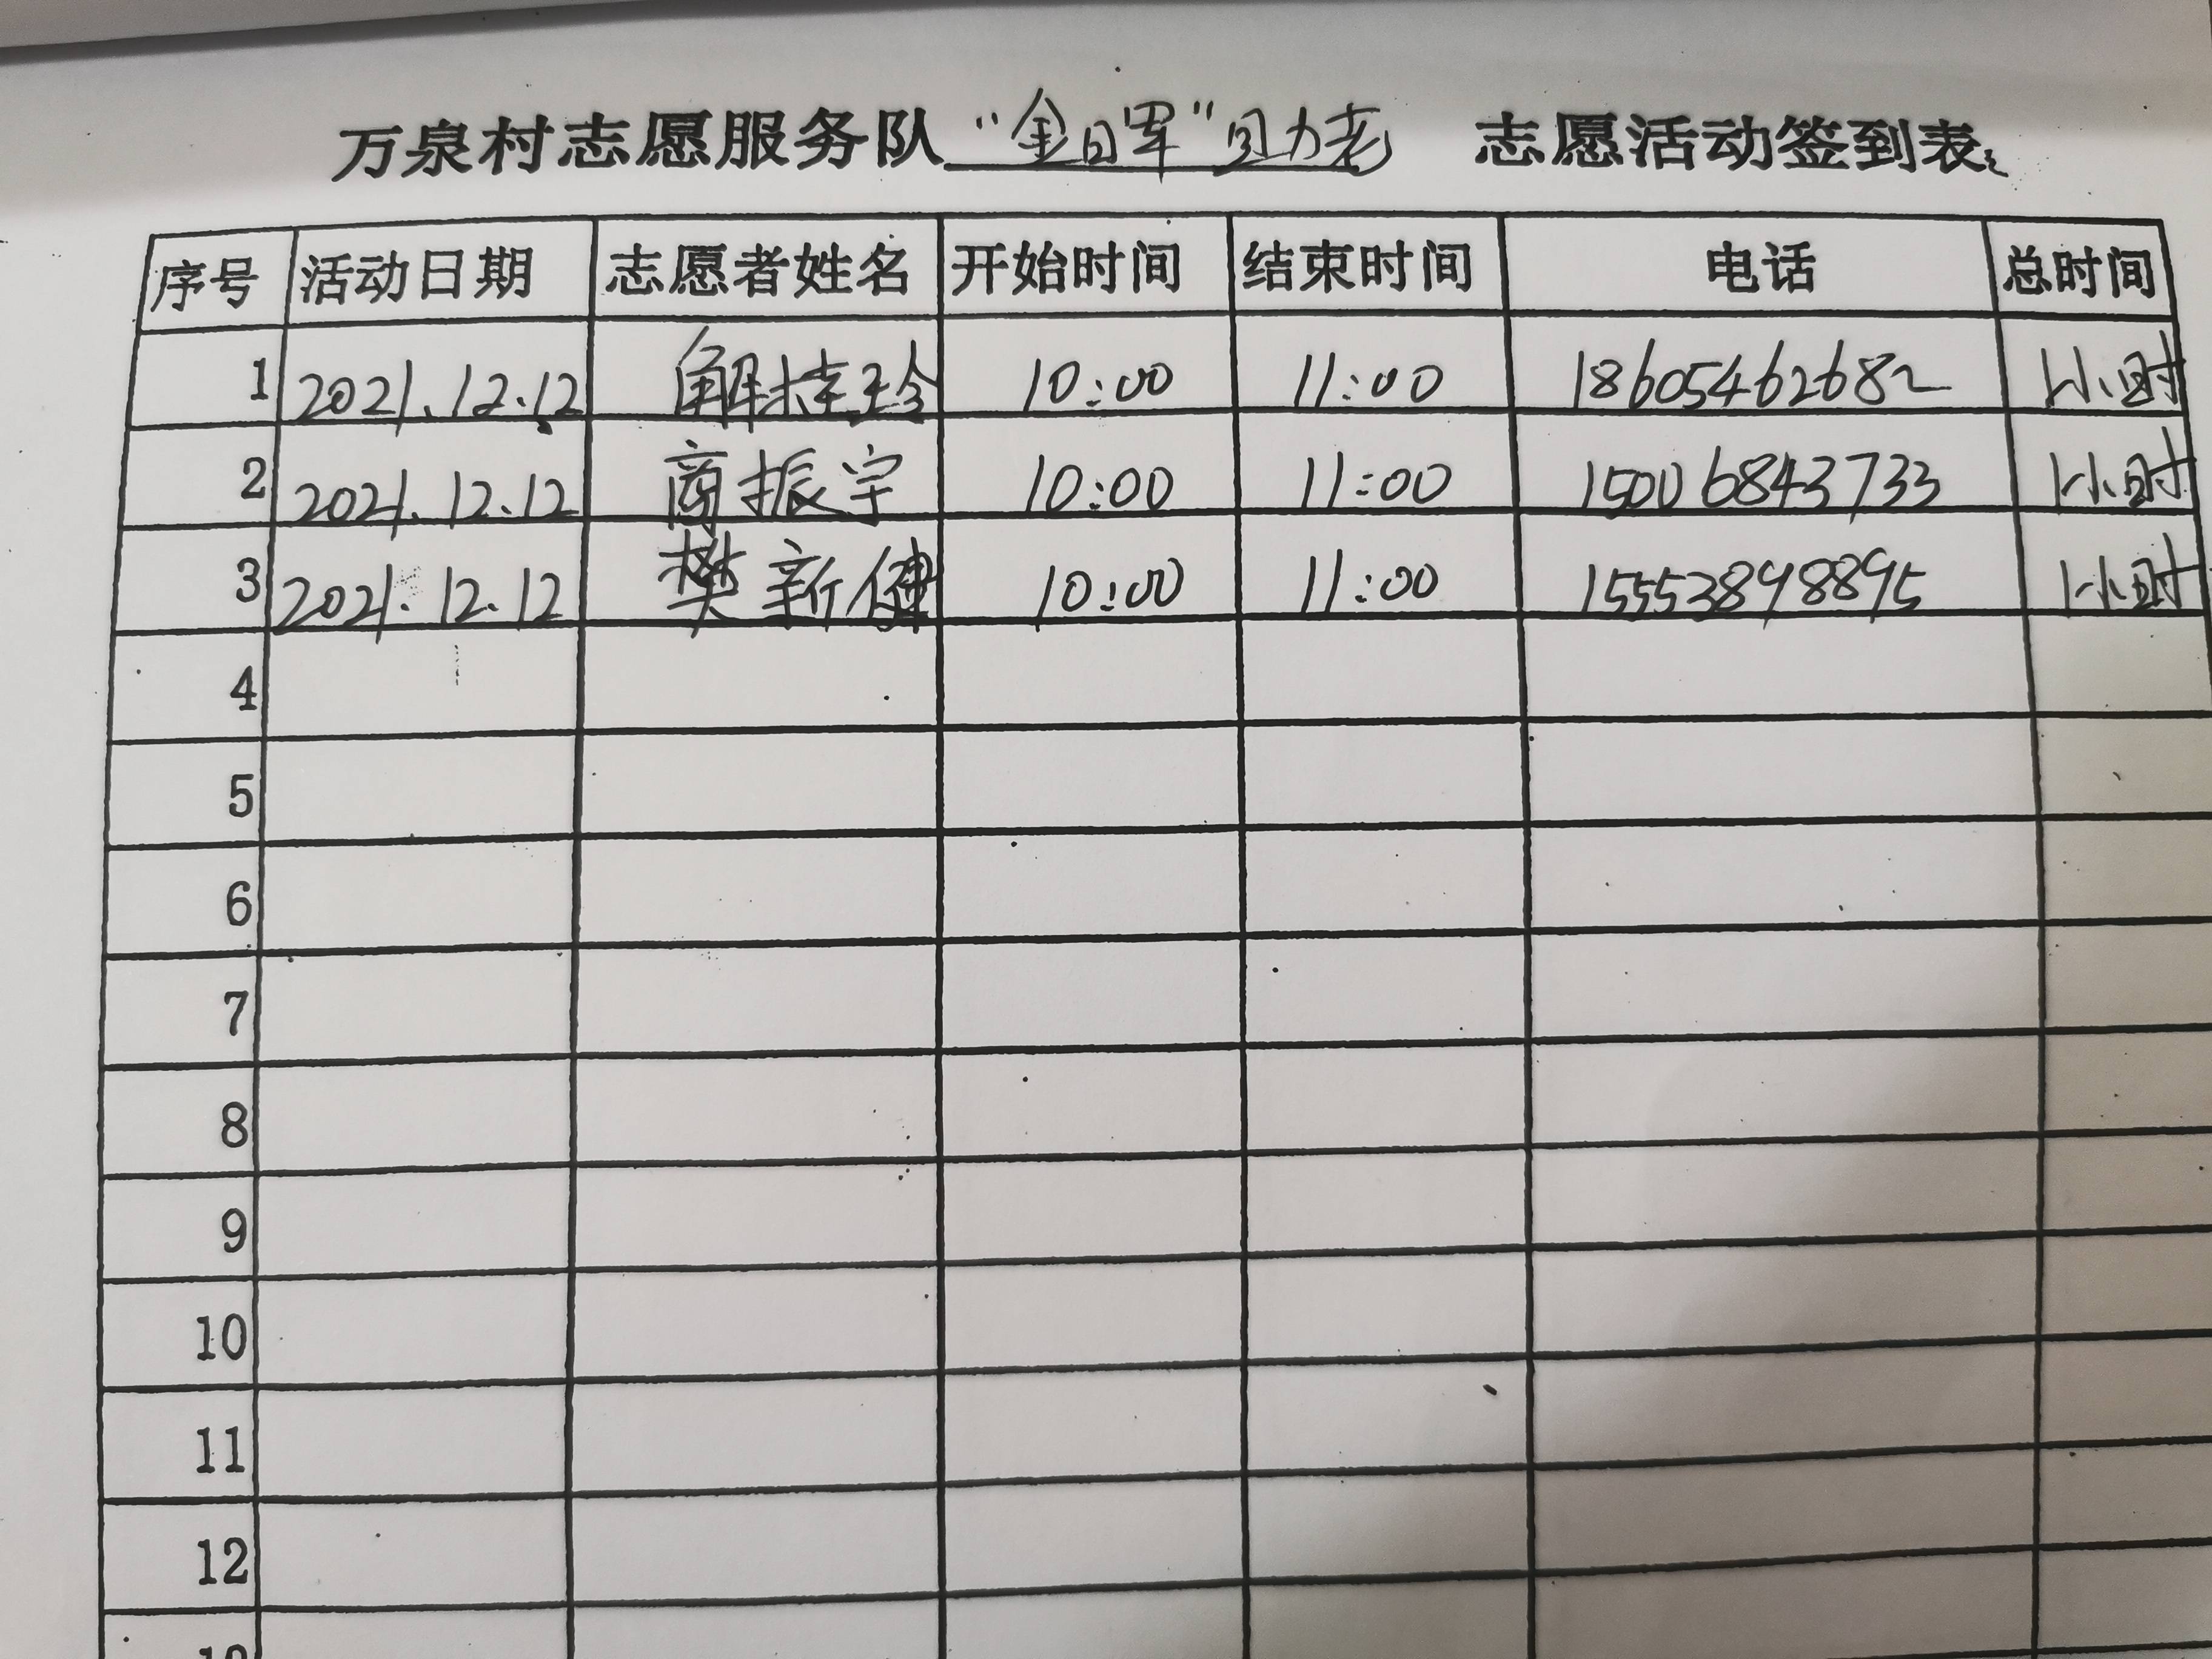 万泉村志愿服务队 "金日军" 助老 志愿活动签到表
序号 活动日期 志愿者姓名 开始时间 结束时间 电话 总时间
1 2021.12.12 解桂珍 10:00 11:00 18605462682 1小时
2 2021.12.12 商振宇 10:00 11:00 15006843733 1小时
3 2021.12.12 樊新健 10:00 11:00 15553898895 1小时
4
5
6
7
8
9
10
11
12